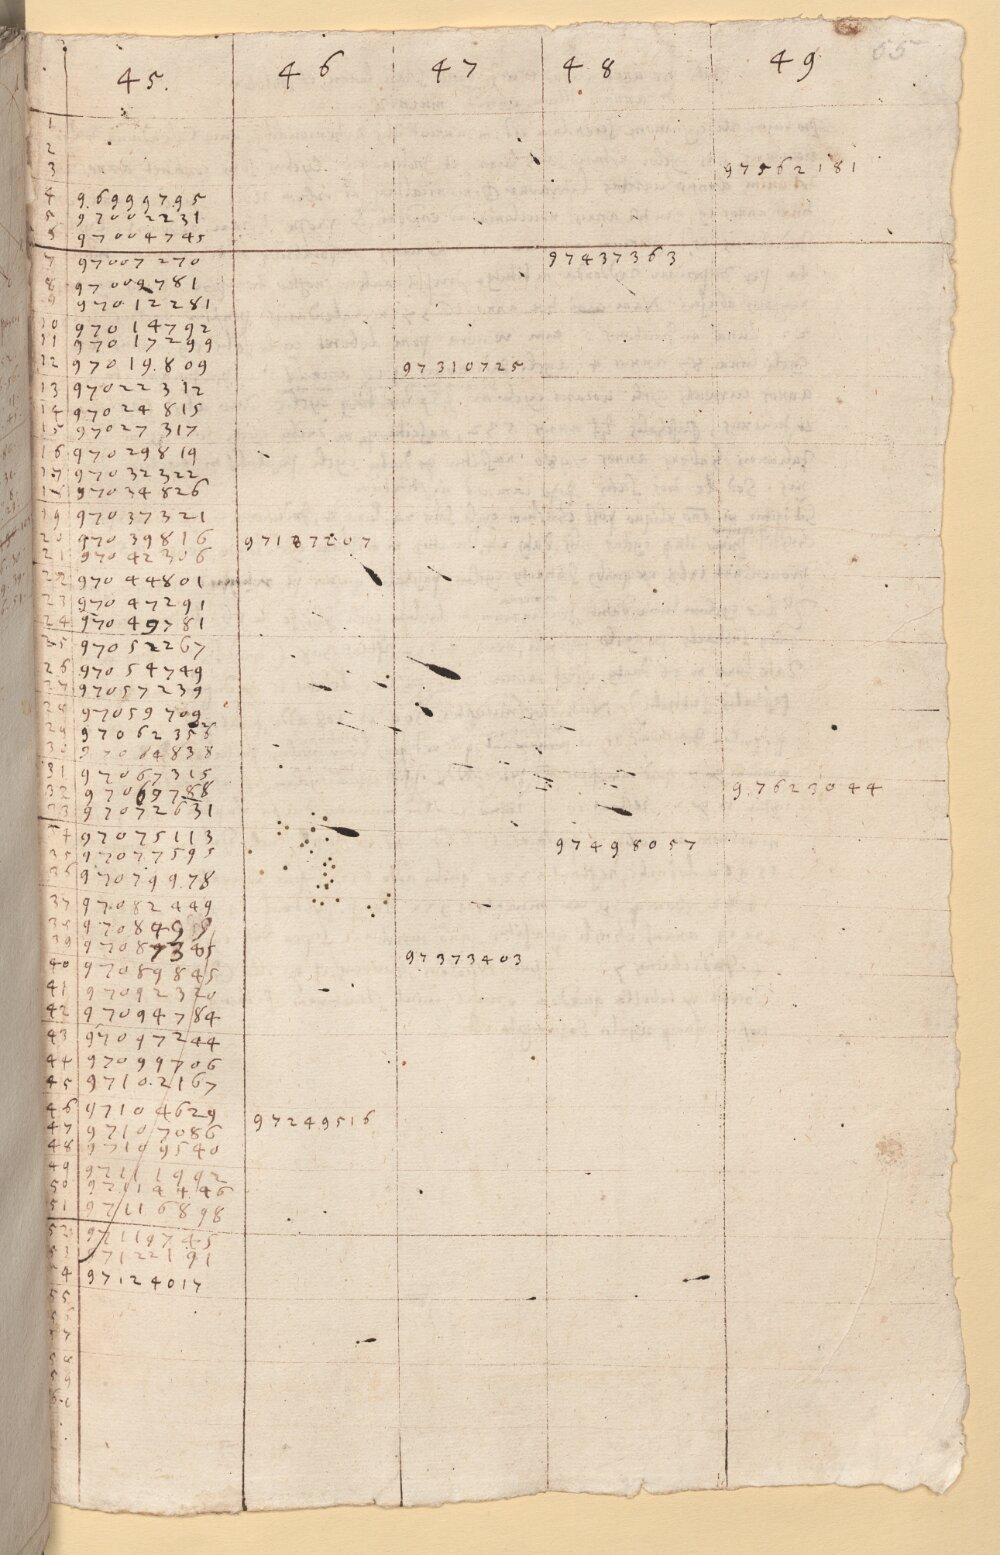 55
45. 46 47 48 49
1
2
3 97562181
4 9.6999795
5 97002231
6 97004745
7 97007270 97437363
8 97009781
9 97012281
10 97014792
11 97017299
12 97019.809 97310725
13 97022312
14 97024815
15 97027317
16 97029819
17 97032322
18 97034826
19 97037321
20 97039816 97187207
21 97042306
22 97044801
23 97047291
24 97049781
25 97052267
26 97054749
27 97057239
28 97059709
29 970623
30 97064838
31 97067315
32 97069788 9.7623044
33 97072631
34 97075113 97498057
35 97077595
36 970799.78
37 97082449
38
39
40 97089845 97373403
41 97092320
42 97094784
43 97097244
44 97099706
45 97102167
46 97104629 97249516
47 97107086
48 97109540
49 97111992
50 97114446
51 97116898
52 97119745
53 97122191
54 97124017
55